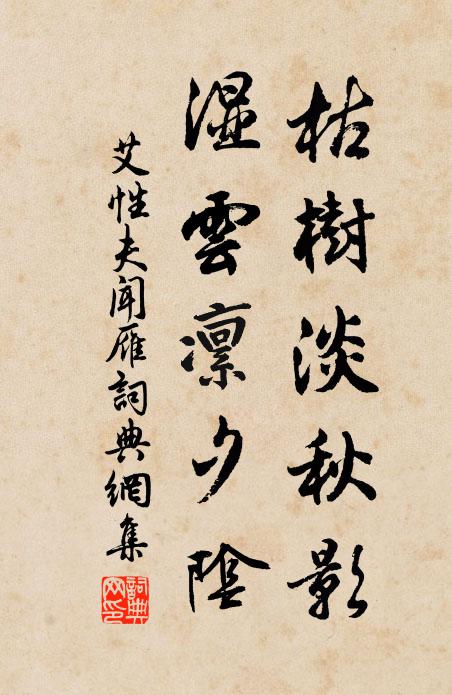 枯樹淡秋影
湿雲凛夕陰
艾性夫聞雁詞典網集
詞典網印